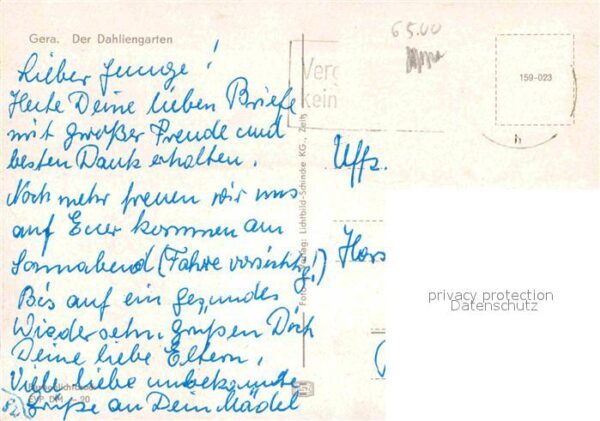 Gera. Der Dahliengarten
Lieber Junge!
Heute Deine lieben Briefe
mit großer Freude und
besten Dank erhalten.
Noch mehr freuen wir uns
auf Euer kommen am
Sonnabend (Fahre vorsichtig!)
Bis auf ein gesundes
Wiedersehn, grüßen Dich
Deine liebe Eltern,
Viele liebe unbekannte
Grüße an Dein Mädel
EVP DM -.20
Foto u. Verlag: Lichtbild-Schincke KG., Zeitz
65.00
Verg
kein
159-023
Uffz.
Hors
privacy protection
Datenschutz